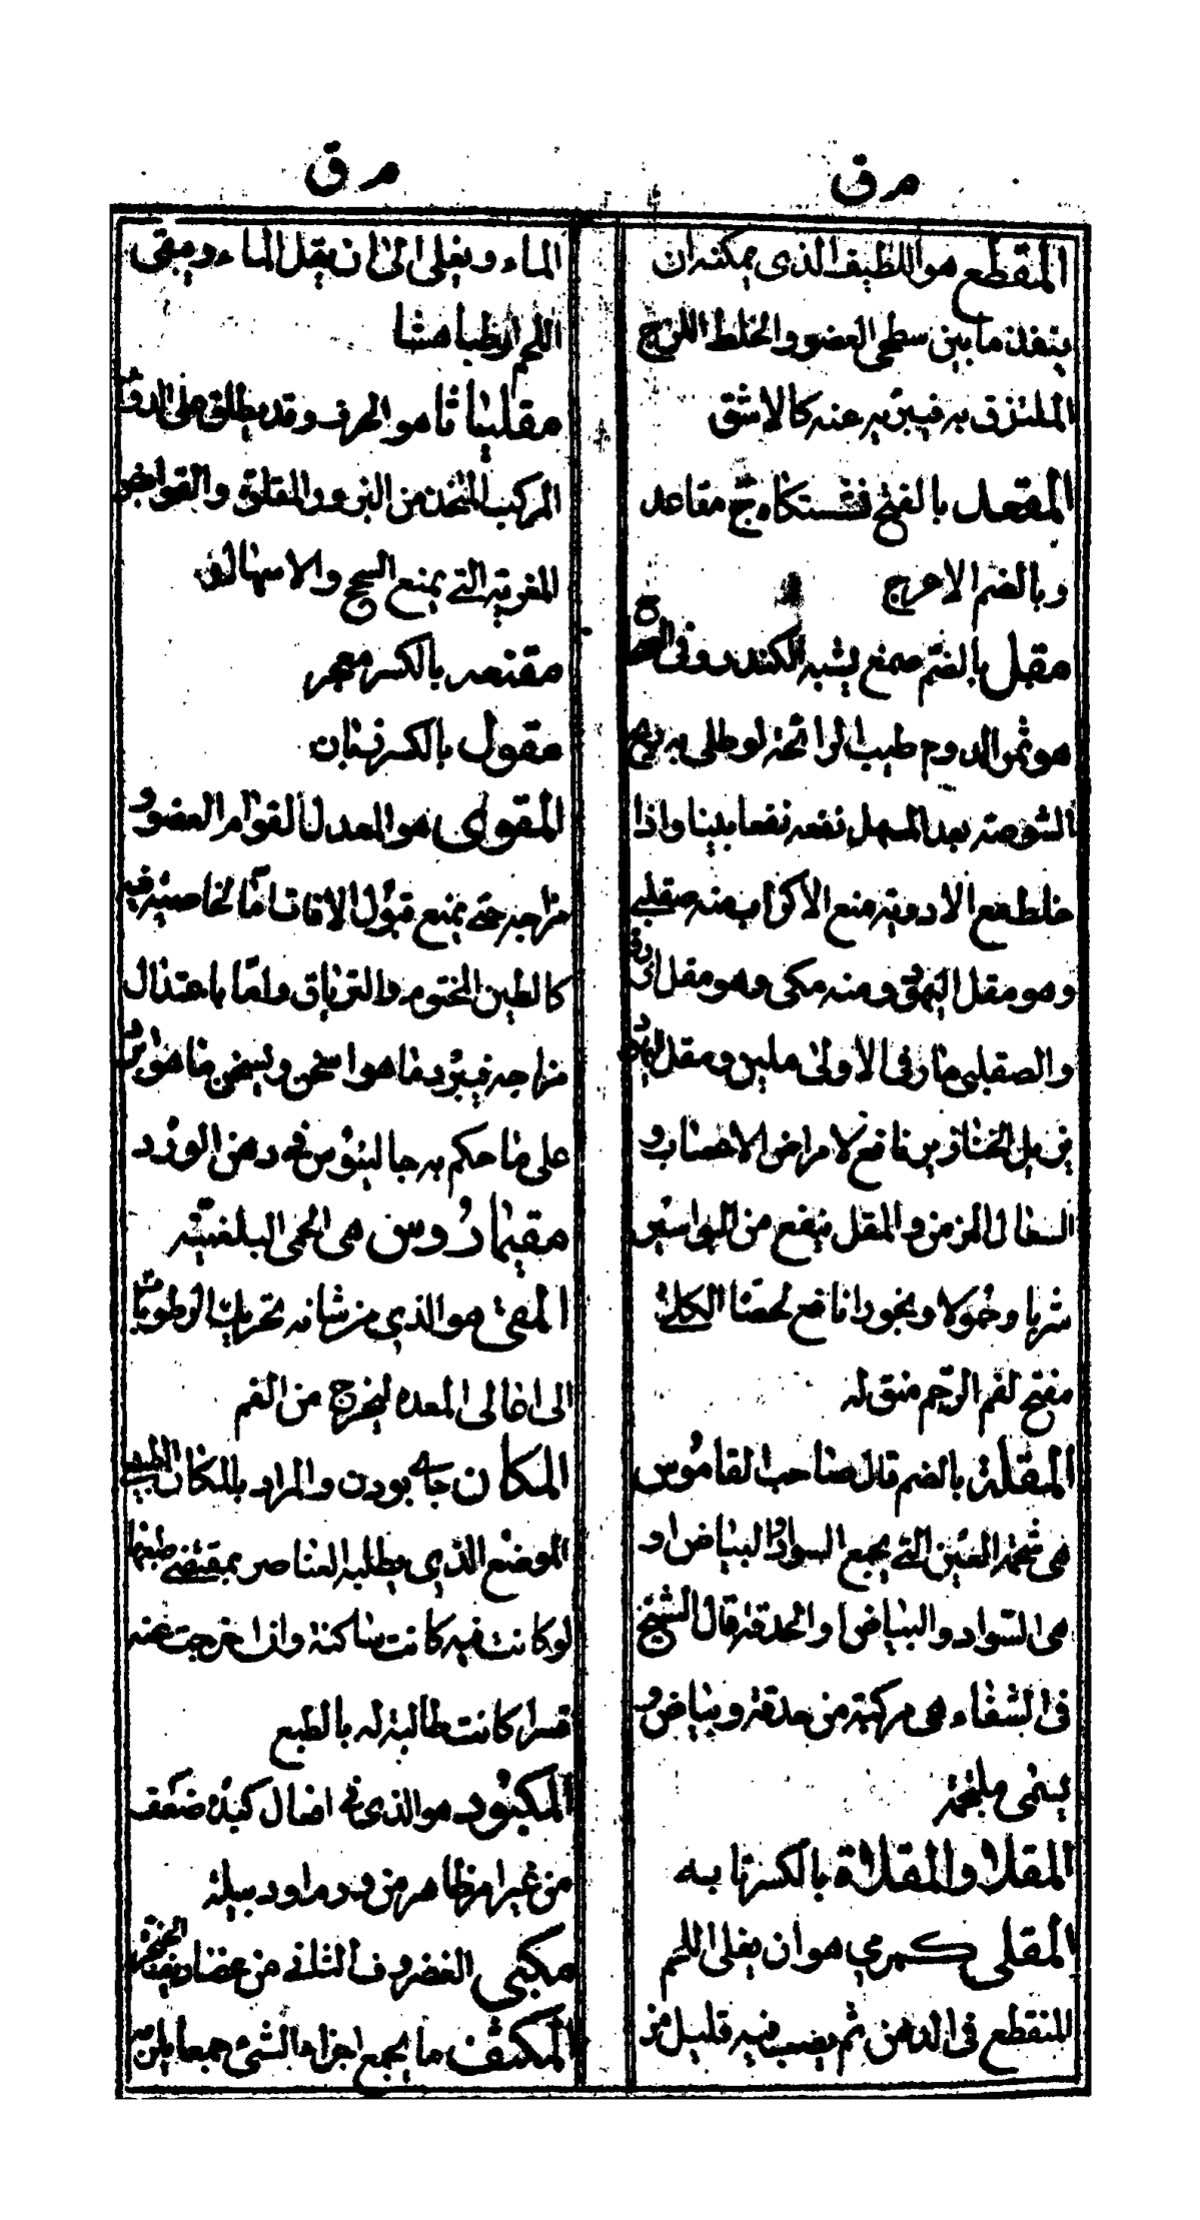 م ق
المقطع هو اللطيف الذى يمكنه ان
ينفذ ما بين سطحى العضو والخلط اللزج
الملتزق به فيبريه عنه كالاشق
المقعد بالفتح نشستكاه ج مقاعد
وبالضم الاعرج
مقل بالضم صمغ يشبه الكندر وفى
هو ثمر الدوم طيب الرائحة لو طلى به
الشوصة بعد المسهل نفعه نفعا بينا واذا
خلط مع الادوية منع الاكراب منه صقلبى
وهو مقل اليهود ومنه مكى وهو مقل
والصقلبى حار فى الاولى ملين ومقل اليهود
يزيل الخنازير نافع لامراض الاعصاب و
السعال المزمن والمقل ينفع من البواسير
شربا وحمولا وبخورا نافع لحصا الكلية
مفتح لفم الرحم منق له
المقلة بالضم قال صاحب القاموس
هى شحمة العين التى يجمع السواد والبياض او
هى السواد والبياض او الحدقة قال الشيخ
فى الشفاء هى مركبة من حدقة وبياض و
يسمى ملتحمة
المقلا والمقلاة بالكسر تابه
المقلى كمرمى هو ان يغلى اللحم
المنقطع فى الدهن ثم يصب فيه قليل من
م ق
الماء ويغلى الى ان يقل الماء ويبقى
اللحم رطبا هشا
مقلياثا هو الحرف وقد يطلق على الدواء
المركب المتخذ من البزور المقلوة والقوابض
المغرية التى يمنع السحج والاسهال
مقنعه بالكسر معجر
مقول بالكسر زبان
المقوى هو المعدل لقوام العضو و
مزاجه حتى يمنع قبول الافات اما لخاصية فيه
كالطين المختوم والترياق واما باعتدال
مزاجه فيبرد ما هو اسخن ويسخن ما هو ابرد
على ما حكم به جالينوس فى دهن الورد
مقيمادوس هى الحمى البلغمية
المقئ هو الذى من شانه تحريك الرطوبات
الى اعالى المعده ليخرج من الفم
المكان جاى بودن والمراد بالمكان الطبيعى
الموضع الذى يطلبه العناصر بمقتضى طبعها
لو كانت فيه كانت ساكنة واذا خرجت عنه
قسرا كانت طالبة له بالطبع
المكبود هو الذى فى افعال كبده ضعف
من غير امر ظاهر من ورم او دبيلة
مكبى الغضروف الثالث من غضاريف الحنجرة
المكثف ما يجمع اجزاء الشئ جمعا